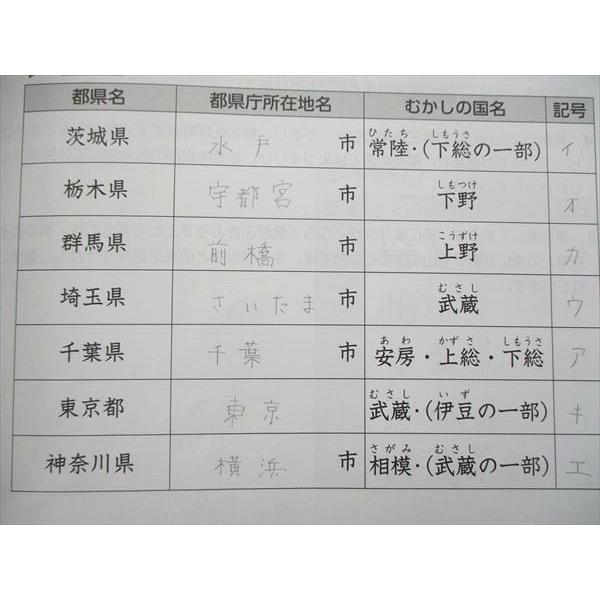 都県名 都県庁所在地名 むかしの国名 記号
茨城県 水戸 市 常陸・(下総の一部) イ
ひたち しもうさ
栃木県 宇都宮 市 下野 オ
しもつけ
群馬県 前橋 市 上野 カ
こうずけ
埼玉県 さいたま 市 武蔵 ウ
むさし
千葉県 千葉 市 安房・上総・下総 ア
あわ かずさ しもうさ
東京都 東京 武蔵・(伊豆の一部) キ
むさし いず
神奈川県 横浜 市 相模・(武蔵の一部) エ
さがみ むさし